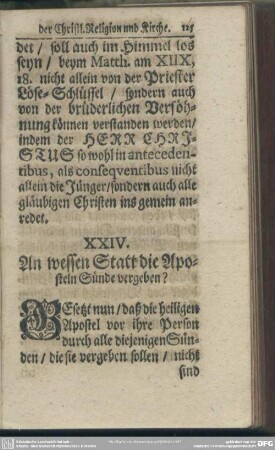 der Christl. Religion und Kirche. 115
det / soll auch im Himmel los
seyn / beym Matth. am XIIX,
18. nicht allein von der Priester
Löse-Schlüssel / sondern auch
von der brüderlichen Versöh-
nung können verstanden werden /
indem der HERR CHRI-
STUS so wohl in anteceden-
tibus, als conseqventibus nicht
allein die Jünger / sondern auch alle
gläubigen Christen ins gemein an-
redet.
XXIV.
An wessen Statt die Apo-
steln Sünde vergeben?
GEsetzt nun / daß die heiligen
Apostel vor ihre Person
durch alle diejenigen Sün-
den / die sie vergeben sollen / nicht
sind